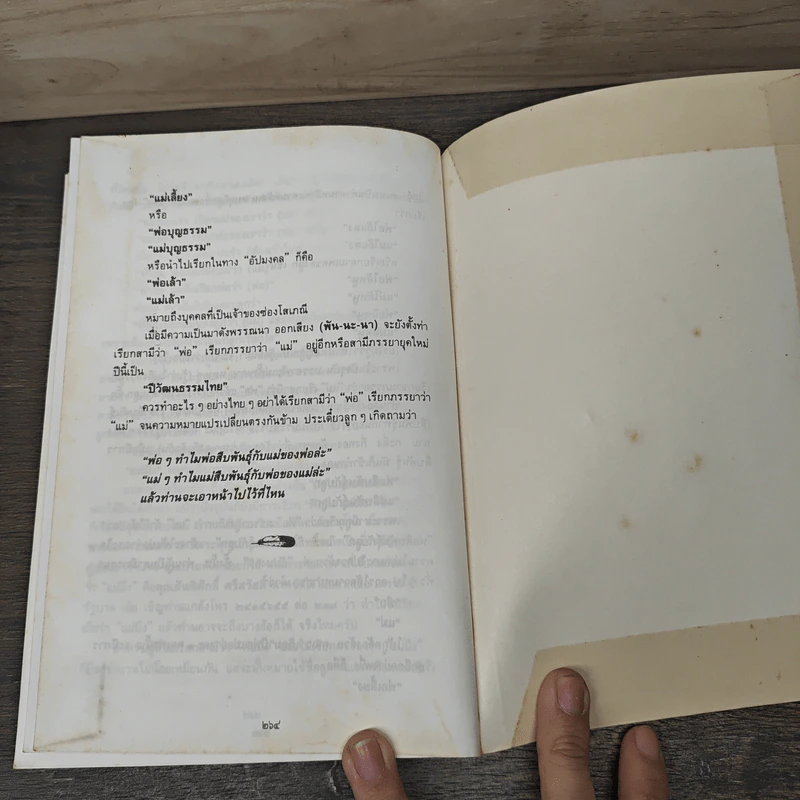 “แม่เลี้ยง”
หรือ
“พ่อบุญธรรม”
“แม่บุญธรรม”
หรือนำไปเรียกในทาง “อัปมงคล” ก็คือ
“พ่อเล้า”
“แม่เล้า”
หมายถึงบุคคลที่เป็นเจ้าของซ่องโสเภณี
เมื่อมีความเป็นมาดังพรรณนา ออกเสียง (พัน-นะ-นา) จะยังตั้งท่า
เรียกสามีว่า “พ่อ” เรียกภรรยาว่า “แม่” อยู่อีกหรือสามีภรรยายุคใหม่
ปีนี้เป็น
“ปีวัฒนธรรมไทย”
ควรทำอะไร ๆ อย่างไทย ๆ อย่าได้เรียกสามีว่า “พ่อ” เรียกภรรยาว่า
“แม่” จนความหมายแปรเปลี่ยนตรงกันข้าม ประเดี๋ยวลูก ๆ เกิดถามว่า
“พ่อ ๆ ทำไมพ่อสืบพันธุ์กับแม่ของพ่อล่ะ”
“แม่ ๆ ทำไมแม่สืบพันธุ์กับพ่อของแม่ล่ะ”
แล้วท่านจะเอาหน้าไปไว้ที่ไหน
๒๖๔